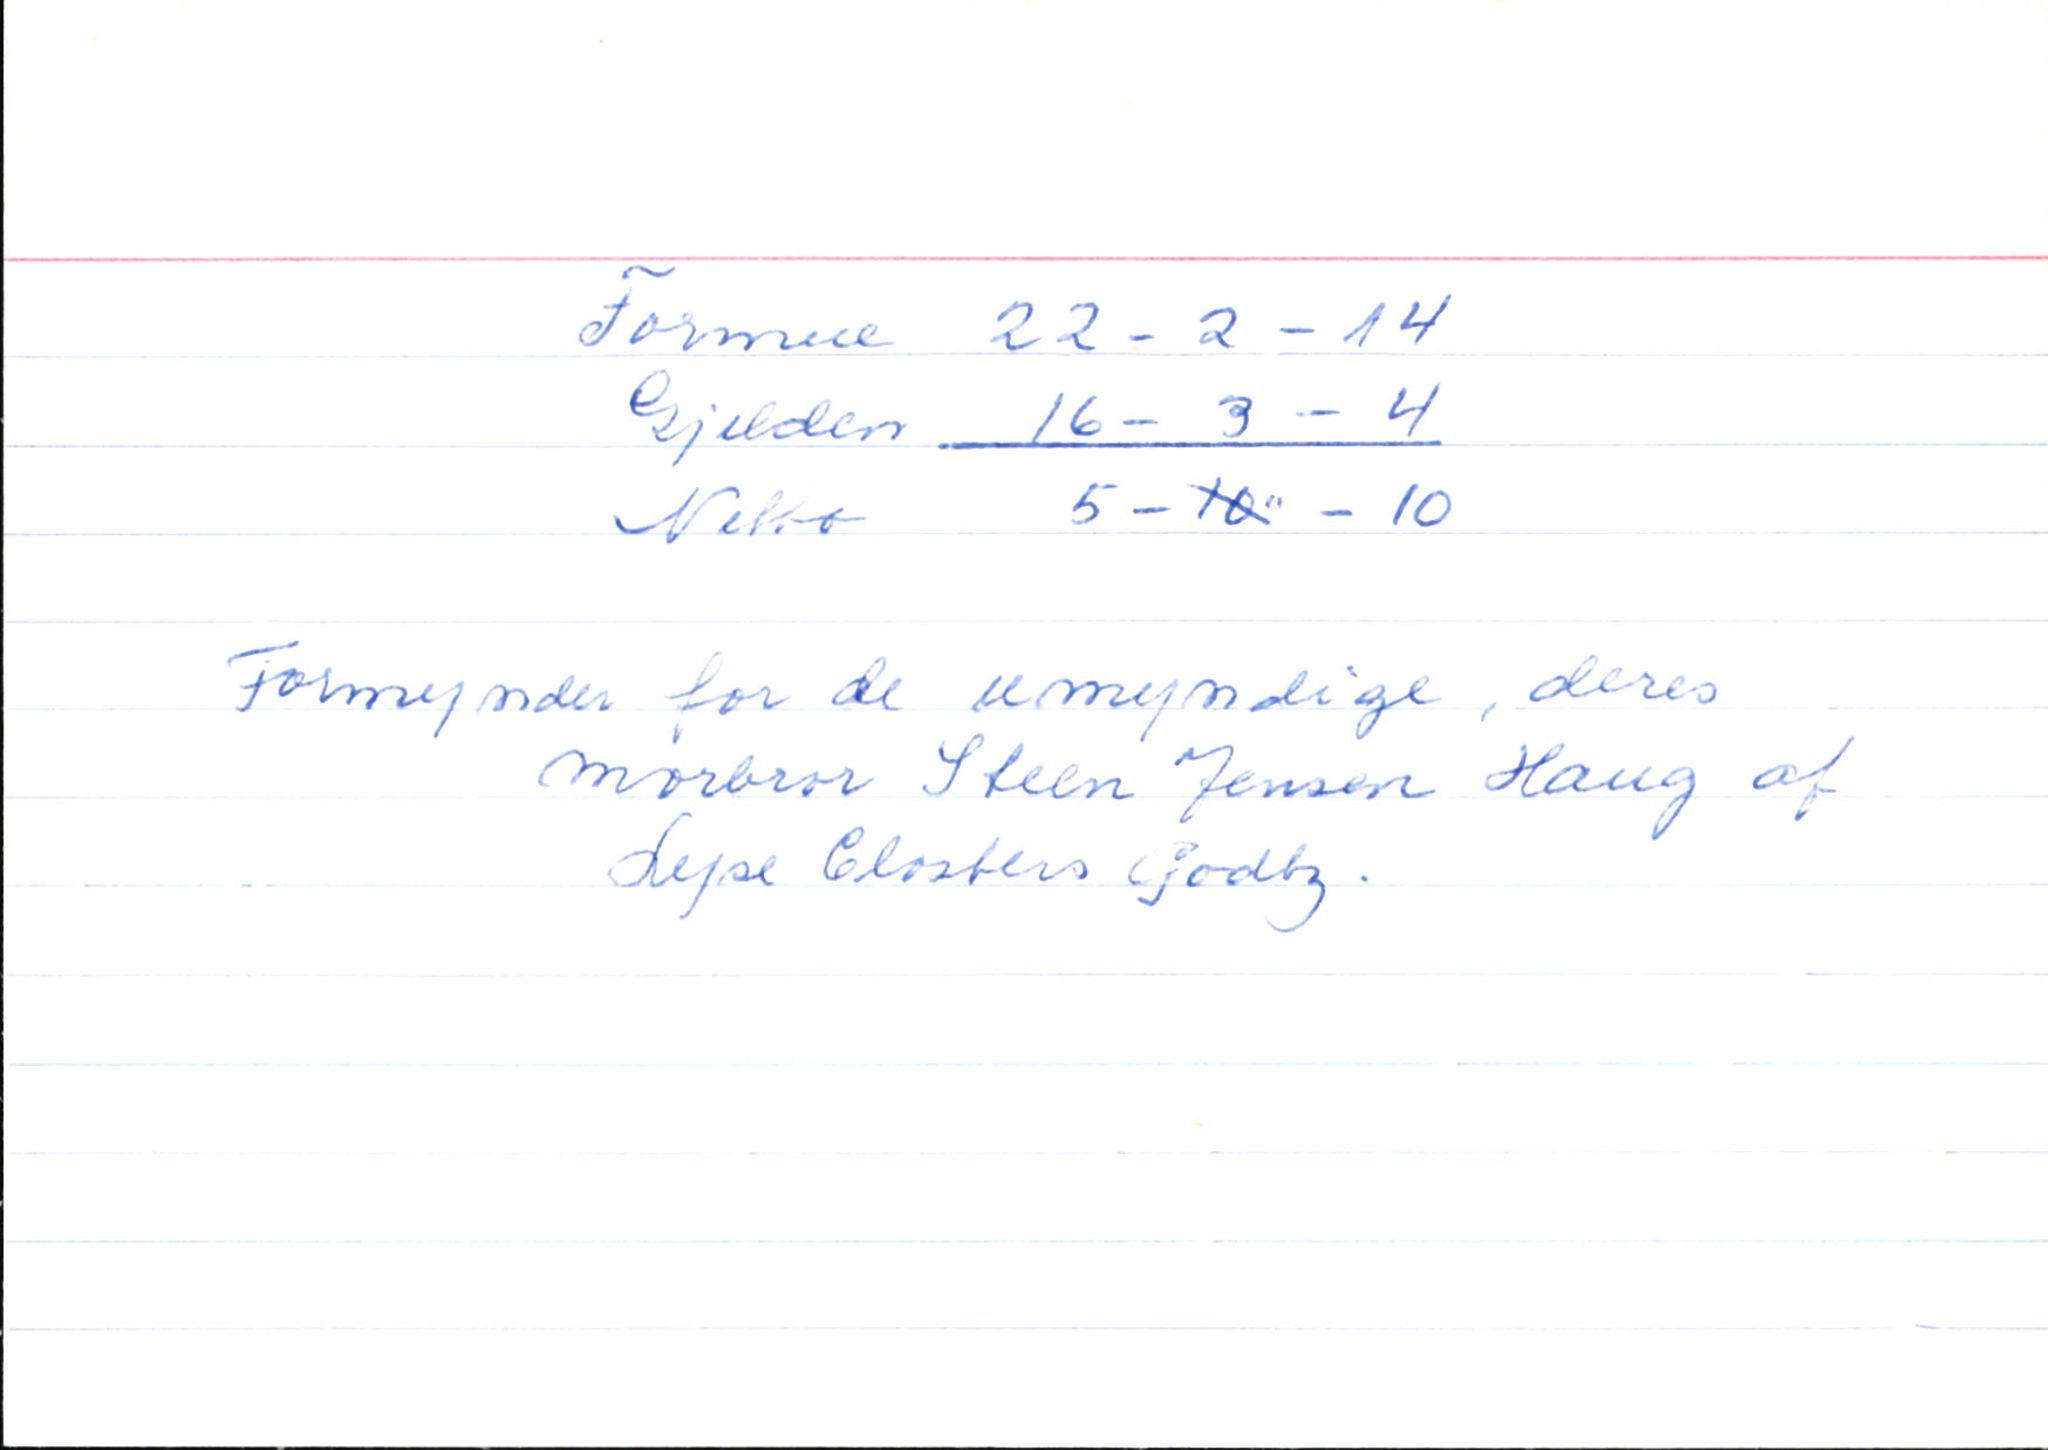 Formue 22 - 2 - 14
Gjelden 16 - 3 - 4
Netto 5 - 10 " - 10
Formynder for de umyndige, deres
morbror Steen Jensen Haug af
Lyse Closters Godtz.